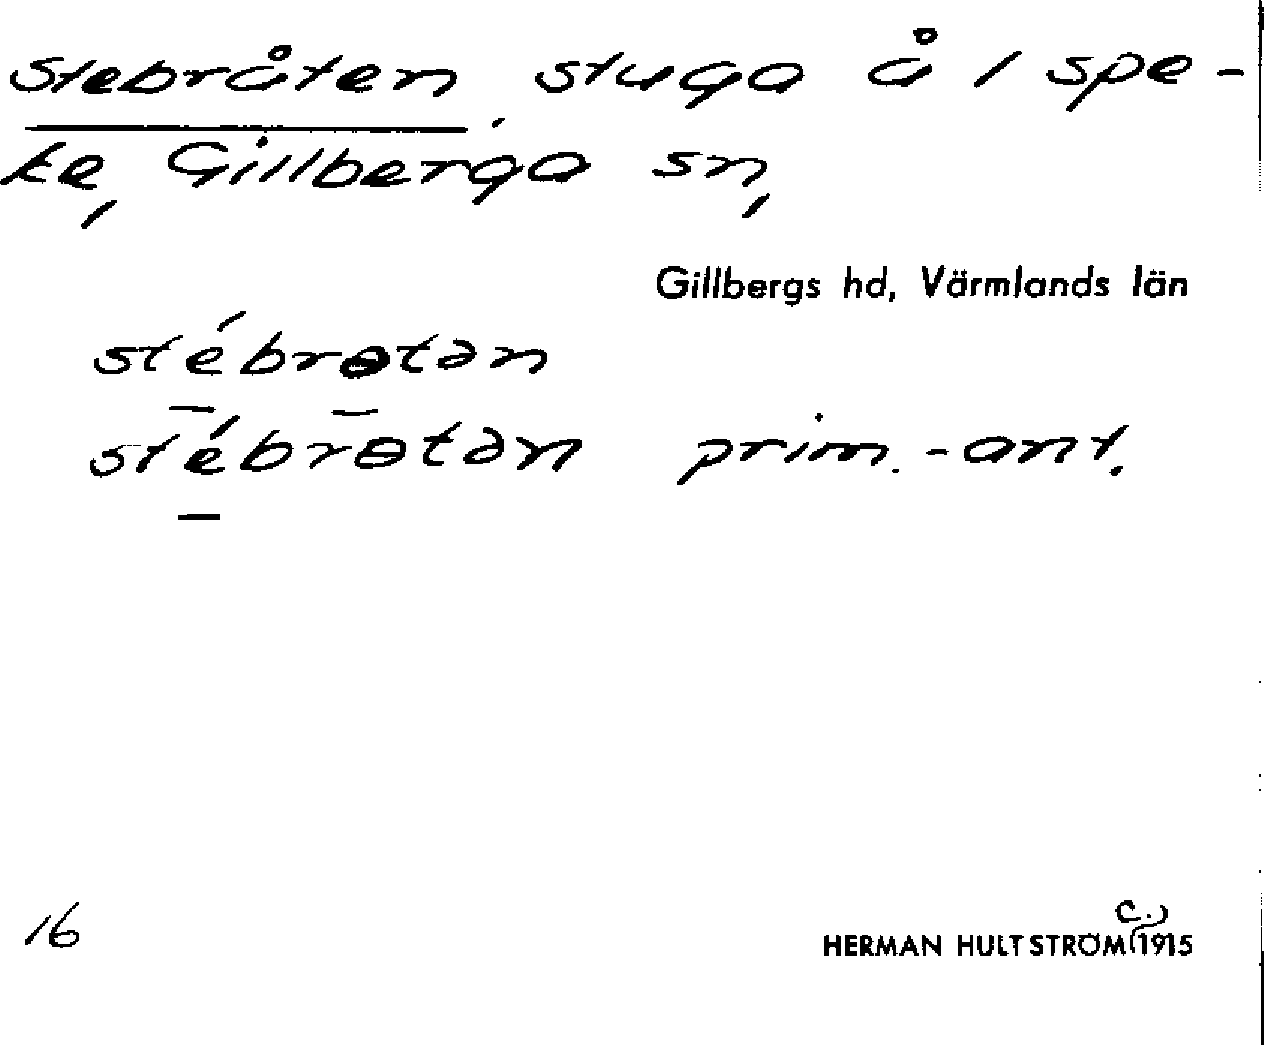 Stebråten, stuga å 1 spe-
ke, Gillberga sn,
Gillbergs hd, Värmlands län
stébrɵtən
stébrɵtən prim.-ant.
16
c.)
HERMAN HULTSTRÖM (1915